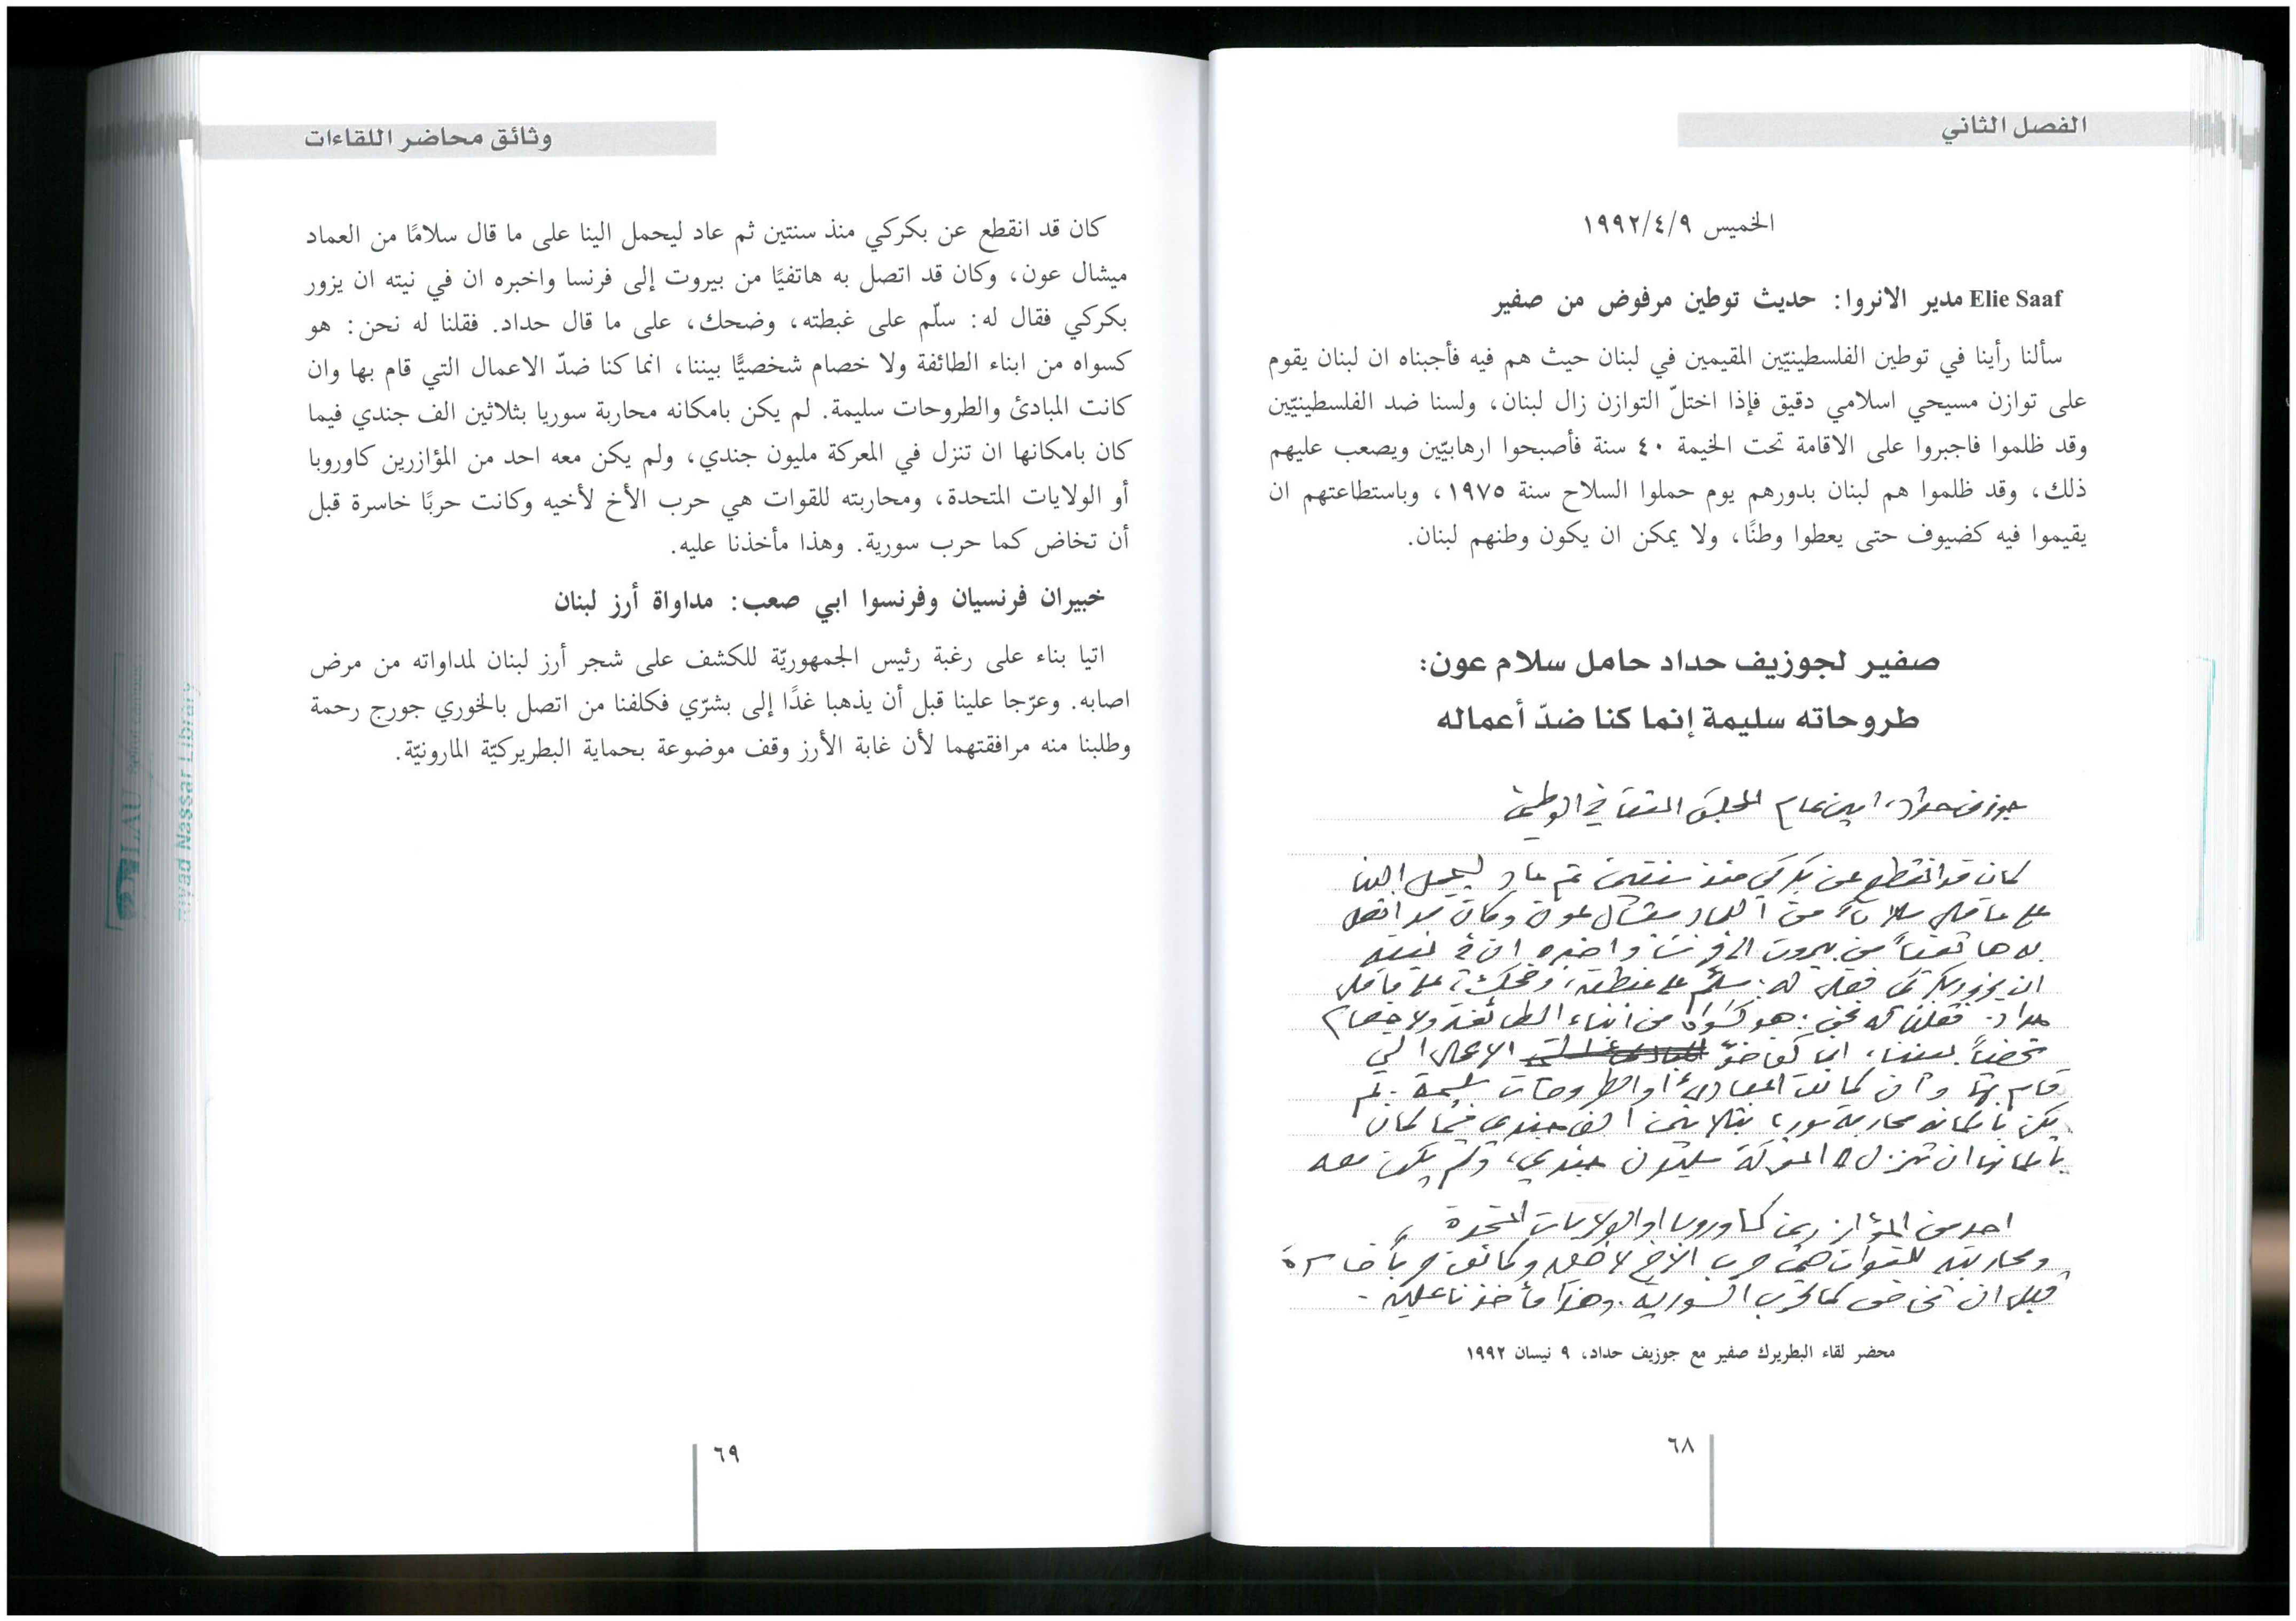 الفصل الثاني
الخميس ١٩٩٢/٤/٩
Elie Saaf مدير الانروا: حديث توطين مرفوض من صفير
سألنا رأينا في توطين الفلسطينيّين المقيمين في لبنان حيث هم فيه فأجبناه ان لبنان يقوم
على توازن مسيحي اسلامي دقيق فإذا اختلّ التوازن زال لبنان، ولسنا ضد الفلسطينيّين
وقد ظلموا فاجبروا على الاقامة تحت الخيمة ٤٠ سنة فأصبحوا ارهابيّين ويصعب عليهم
ذلك، وقد ظلموا هم لبنان بدورهم يوم حملوا السلاح سنة ١٩٧٥، وباستطاعتهم ان
يقيموا فيه كضيوف حتى يعطوا وطنًا، ولا يمكن ان يكون وطنهم لبنان.
صفير لجوزيف حداد حامل سلام عون:
طروحاته سليمة إنما كنا ضدّ أعماله
جوزف حداد، امين عام المجلس الثقافي الوطني
كان قد انقطع عن بكركي منذ سنتين ثم عاد ليحمل الينا
على ما قال سلاماً من العماد ميشال عون وكان قد اتصل
به هاتفياً من بيروت الى فرنسا واخبره ان في نيته
ان يزور بكركي فقال له: سلّم على غبطته، وضحك، على ما قال
حداد. فقلنا له نحن: هو كسواه من ابناء الطائفة ولا خصام
شخصياً بيننا، انما كنا ضدّ الاعمال التي
قام بها وان كانت المبادئ او الطروحات سليمة. لم
يكن بامكانه محاربة سوريا بثلاثين الف جندي فيما كان
بامكانها ان تنزل الى المعركة مليون جندي، ولم يكن معه
احد من المؤازرين كاوروبا او الولايات المتحدة،
ومحاربته للقوات هي حرب الأخ لأخيه وكانت حرباً خاسرة
قبل ان تخاض كما الحرب السورية. وهذا مأخذنا عليه.
محضر لقاء البطريرك صفير مع جوزيف حداد، ٩ نيسان ١٩٩٢
٦٨
وثائق محاضر اللقاءات
كان قد انقطع عن بكركي منذ سنتين ثم عاد ليحمل الينا على ما قال سلامًا من العماد
ميشال عون، وكان قد اتصل به هاتفيًا من بيروت إلى فرنسا واخبره ان في نيته ان يزور
بكركي فقال له: سلّم على غبطته، وضحك، على ما قال حداد. فقلنا له نحن: هو
كسواه من ابناء الطائفة ولا خصام شخصيًّا بيننا، انما كنا ضدّ الاعمال التي قام بها وان
كانت المبادئ والطروحات سليمة. لم يكن بامكانه محاربة سوريا بثلاثين الف جندي فيما
كان بامكانها ان تنزل في المعركة مليون جندي، ولم يكن معه احد من المؤازرين كاوروبا
أو الولايات المتحدة، ومحاربته للقوات هي حرب الأخ لأخيه وكانت حربًا خاسرة قبل
أن تخاض كما حرب سورية. وهذا مأخذنا عليه.
خبيران فرنسيان وفرنسوا ابي صعب: مداواة أرز لبنان
اتيا بناء على رغبة رئيس الجمهوريّة للكشف على شجر أرز لبنان لمداواته من مرض
اصابه. وعرّجا علينا قبل أن يذهبا غدًا إلى بشرّي فكلفنا من اتصل بالخوري جورج رحمة
وطلبنا منه مرافقتهما لأن غابة الأرز وقف موضوعة بحماية البطريركيّة المارونيّة.
٦٩
LAU
Riyad Nassar Library